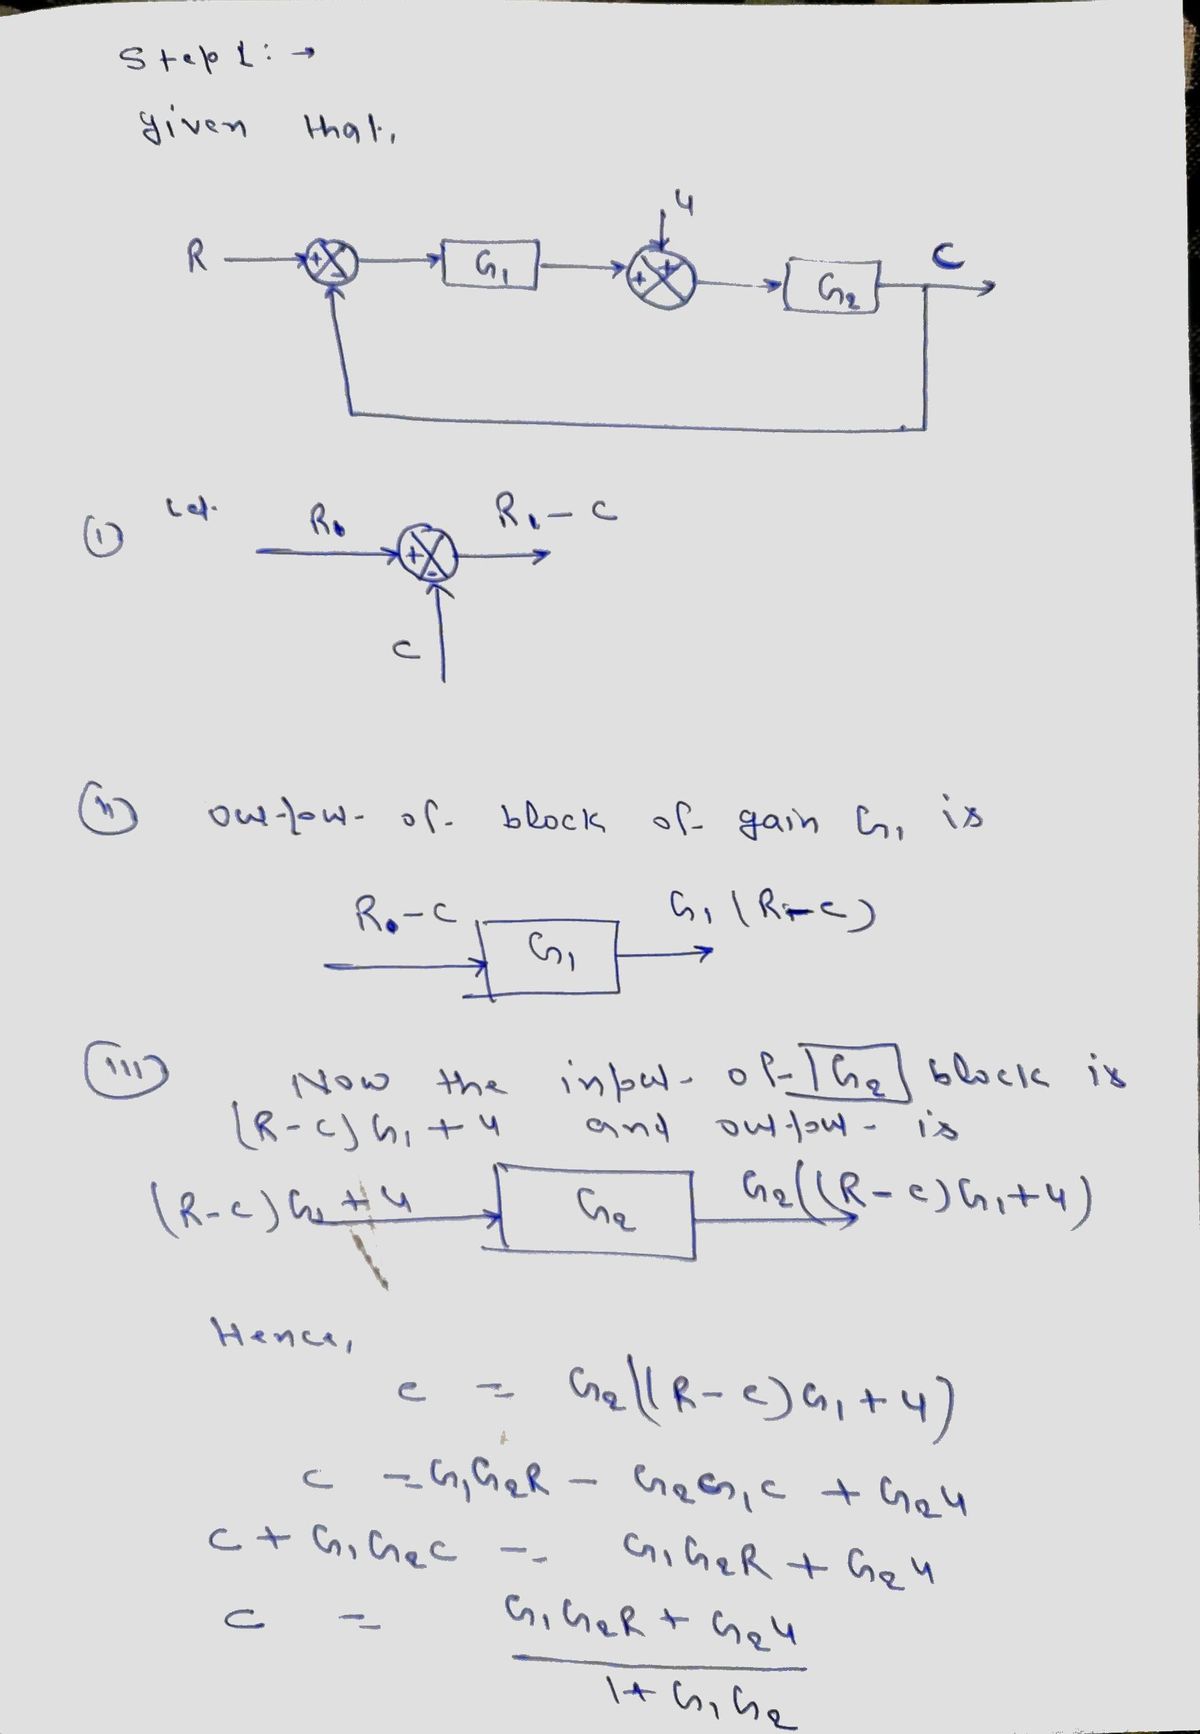 Step 1: →
given that,
4
R + G₁ + + G₂ C
(i) Let R₀ R₁ - C
+ -
C
(ii) output of block of gain G₁ is
R₀-C G₁ G₁(R-C)
(iii) Now the input of G₂ block is
(R-C)G₁ + 4 and output is
(R-C)G₁ + 4 G₂ G₂((R-C)G₁+4)
Hence,
C = G₂((R-C)G₁+4)
C = G₁G₂R - G₂G₁C + G₂4
C + G₁G₂C = G₁G₂R + G₂4
C = G₁G₂R + G₂4
1+ G₁G₂